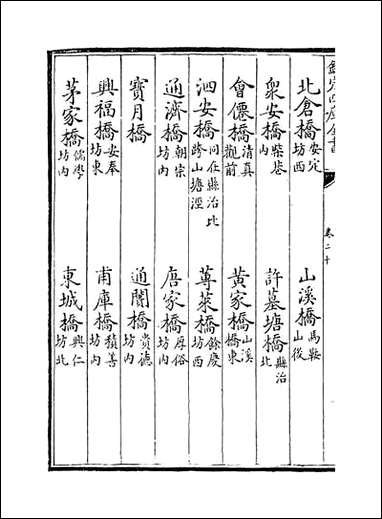 欽定四庫全書
卷二十
北倉橋安定坊西 山溪橋馬鞍山後
衆安橋柴巷内 許墓塘橋縣治北
會僊橋清真觀前 黄家橋山溪橋東
泗安橋同在縣治北跨山塘涇 蓴菜橋餘慶坊西
通濟橋朝宗坊内 唐家橋厚俗坊内
寶月橋 通闤橋賞德坊内
興福橋安奉坊東 甫庫橋積善坊内
茅家橋儒學坊内 東城橋興仁坊北